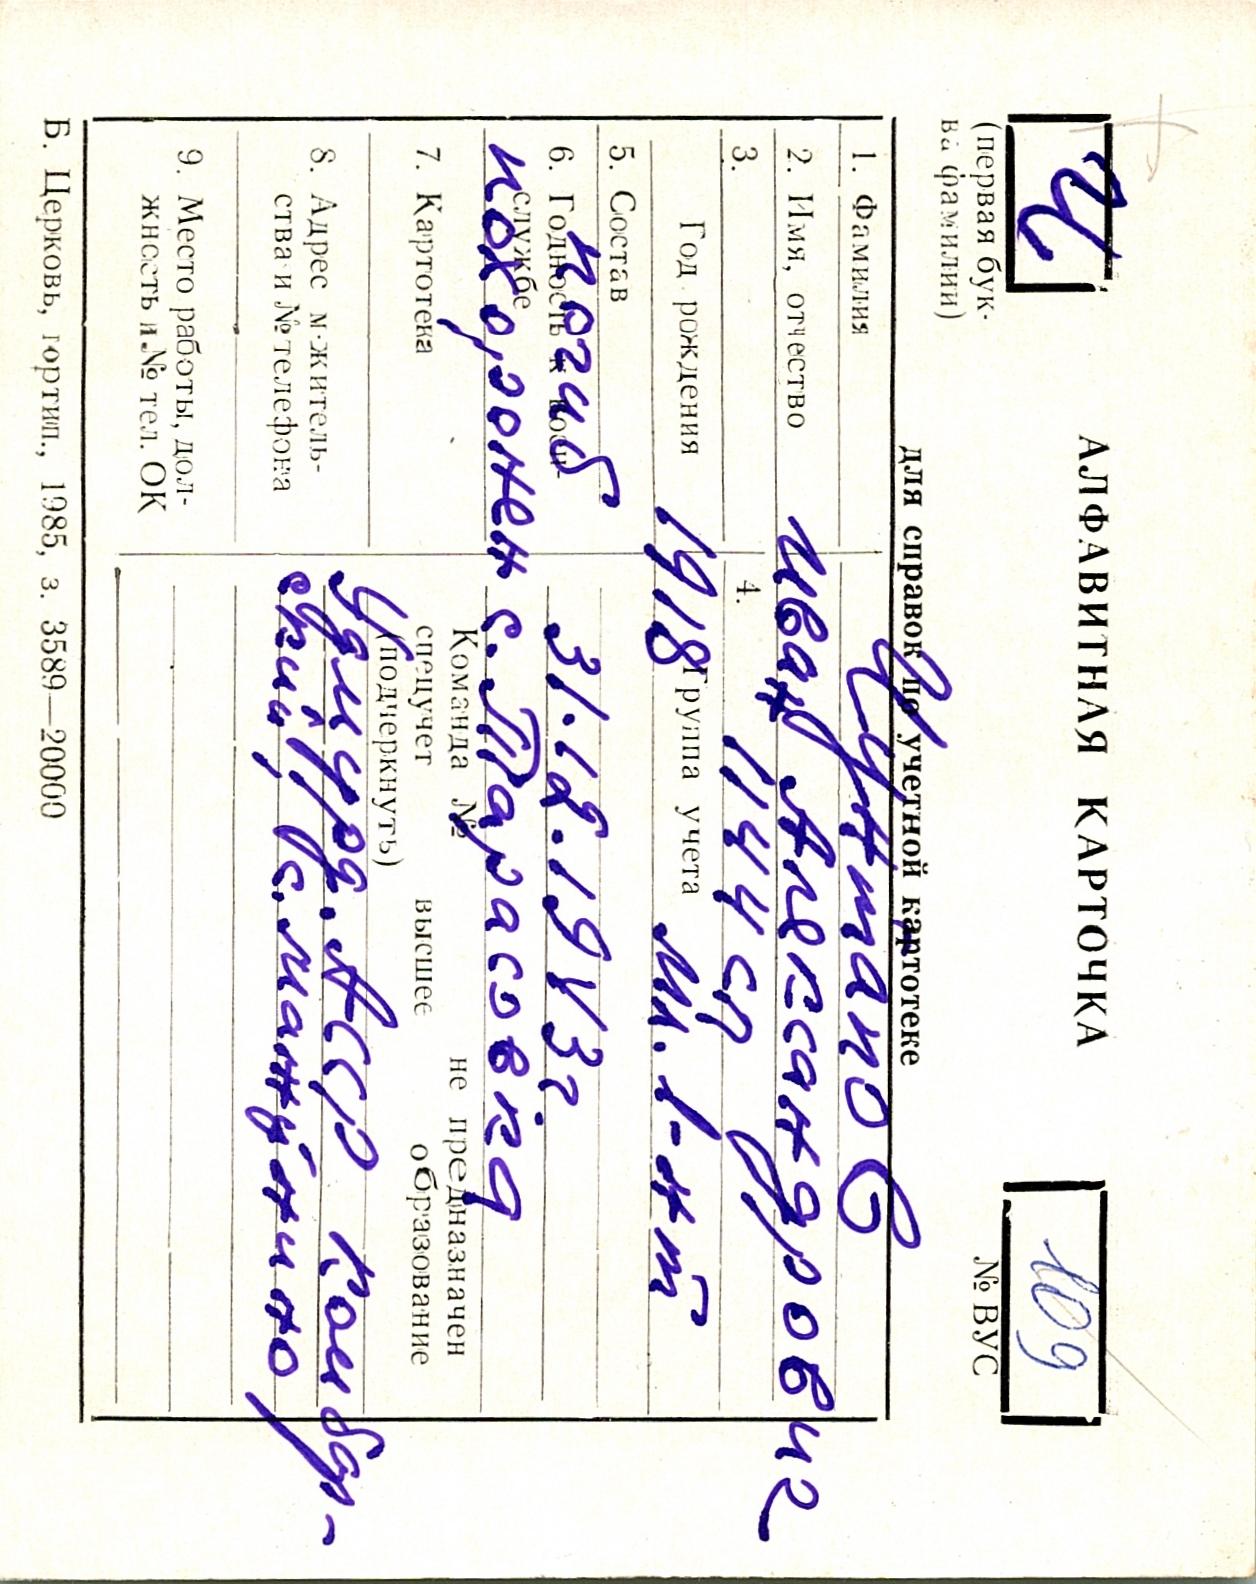 АЛФАВИТНАЯ КАРТОЧКА
Ц
109
(первая бук-
ва фамилии)
№ ВУС
для справок по учетной картотеке
1. Фамилия
2. Имя, отчество Иван Александрович
3. 4. 1144 сп
Год рождения 1918 Группа учета мл. л-нт
5. Состав
6. Годность к воен-
службе
погиб 31.12.1943г
похоронен с. Тарасовка
7. Картотека
Команда № не предназначен
спецучет высшее образование
(подчеркнуть)
8. Адрес м-житель-
ства и № телефона
Удмурд. АССР Камбар-
ский,
9. Место работы, дол-
жность и № тел. ОК
Б. Церковь, гортип., 1985, з. 3589—20000